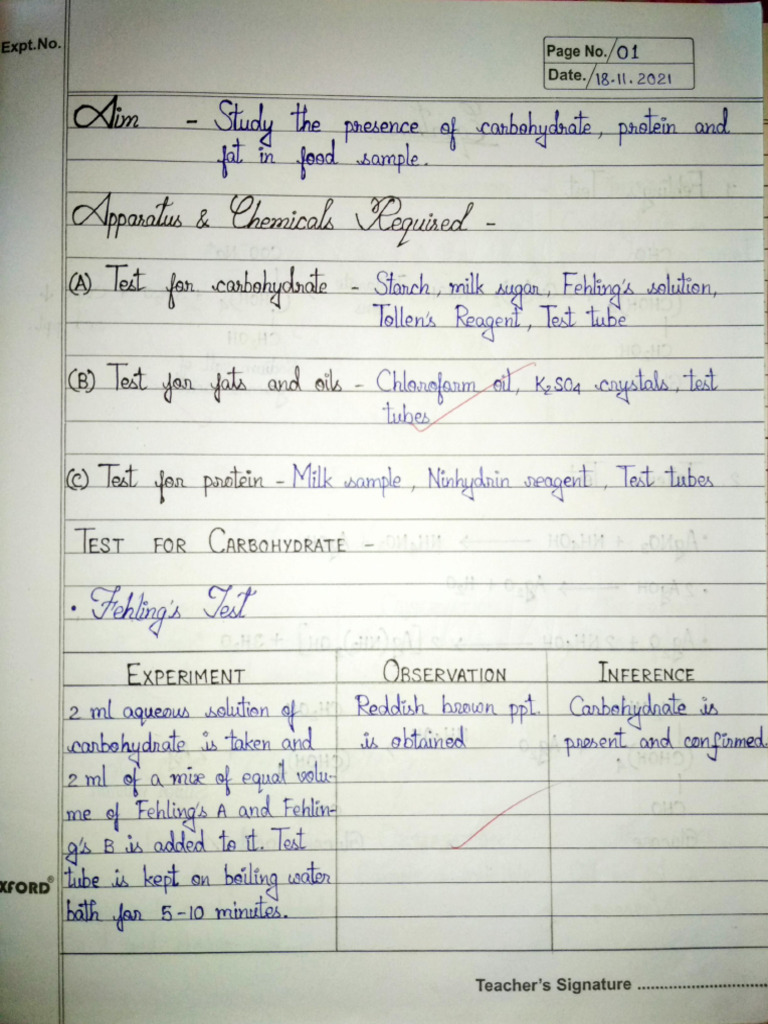 Expt.No.
Page No. 01
Date. 18-11.2021
Aim - Study the presence of carbohydrate, protein and
fat in food sample.
Apparatus & Chemicals Required -
(A) Test for carbohydrate - Starch, milk sugar, Fehling's solution,
Tollen's Reagent, Test tube
(B) Test for fats and oils - Chloroform oil, K2SO4 crystals, test
tubes
(C) Test for protein - Milk sample, Ninhydrin reagent, Test tubes
TEST FOR CARBOHYDRATE -
• Fehling's Test
EXPERIMENT OBSERVATION INFERENCE
2 ml aqueous solution of Reddish brown ppt. Carbohydrate is
carbohydrate is taken and is obtained present and confirmed.
2 ml of a mixe of equal volu-
me of Fehling's A and Fehlin-
g's B is added to it. Test
tube is kept on boiling water
bath for 5-10 minutes.
XFORD®
Teacher's Signature ............................